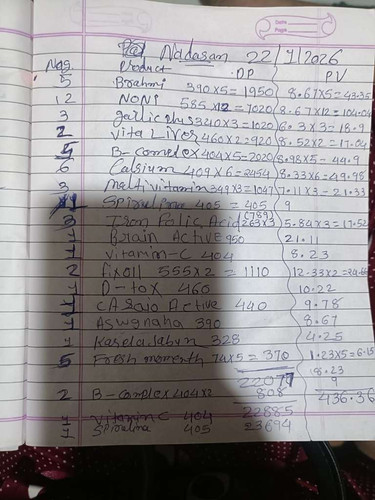 Nadasan 22/1/2026
Nos. Product DP PV
5 Brahmi 390x5=1950 8.67x5=43.35
12 NONI 585x12=7020 8.67x12=104.04
3 garlic plus 340x3=1020 6.3x3=18.9
2 Vita Liver 460x2=920 8.52x2=17.04
5 B-complex 404x5=2020 8.98x5=44.9
6 Calsium 409x6=2454 8.33x6=49.98
3 Multivitamin 349x3=1047 7.11x3=21.33
Spirulina 405=405 9
3 Iron Folic Acid 263x3 (789) 5.84x3=17.52
1 Brain Active 950 21.11
1 Vitamin-C 404 8.23
2 555x2=1110 12.33x2=24.66
1 D-tox 460 10.22
1 Active 440 9.78
1 390 8.67
1 328 4.25
5 Fresh momenth 74x5=370 1.23x5=6.15
22077 8.23
2 B-Complex 404x2 808 9
22885 436.36
1 Vitamin C 404
1 Spirulina 405 23694